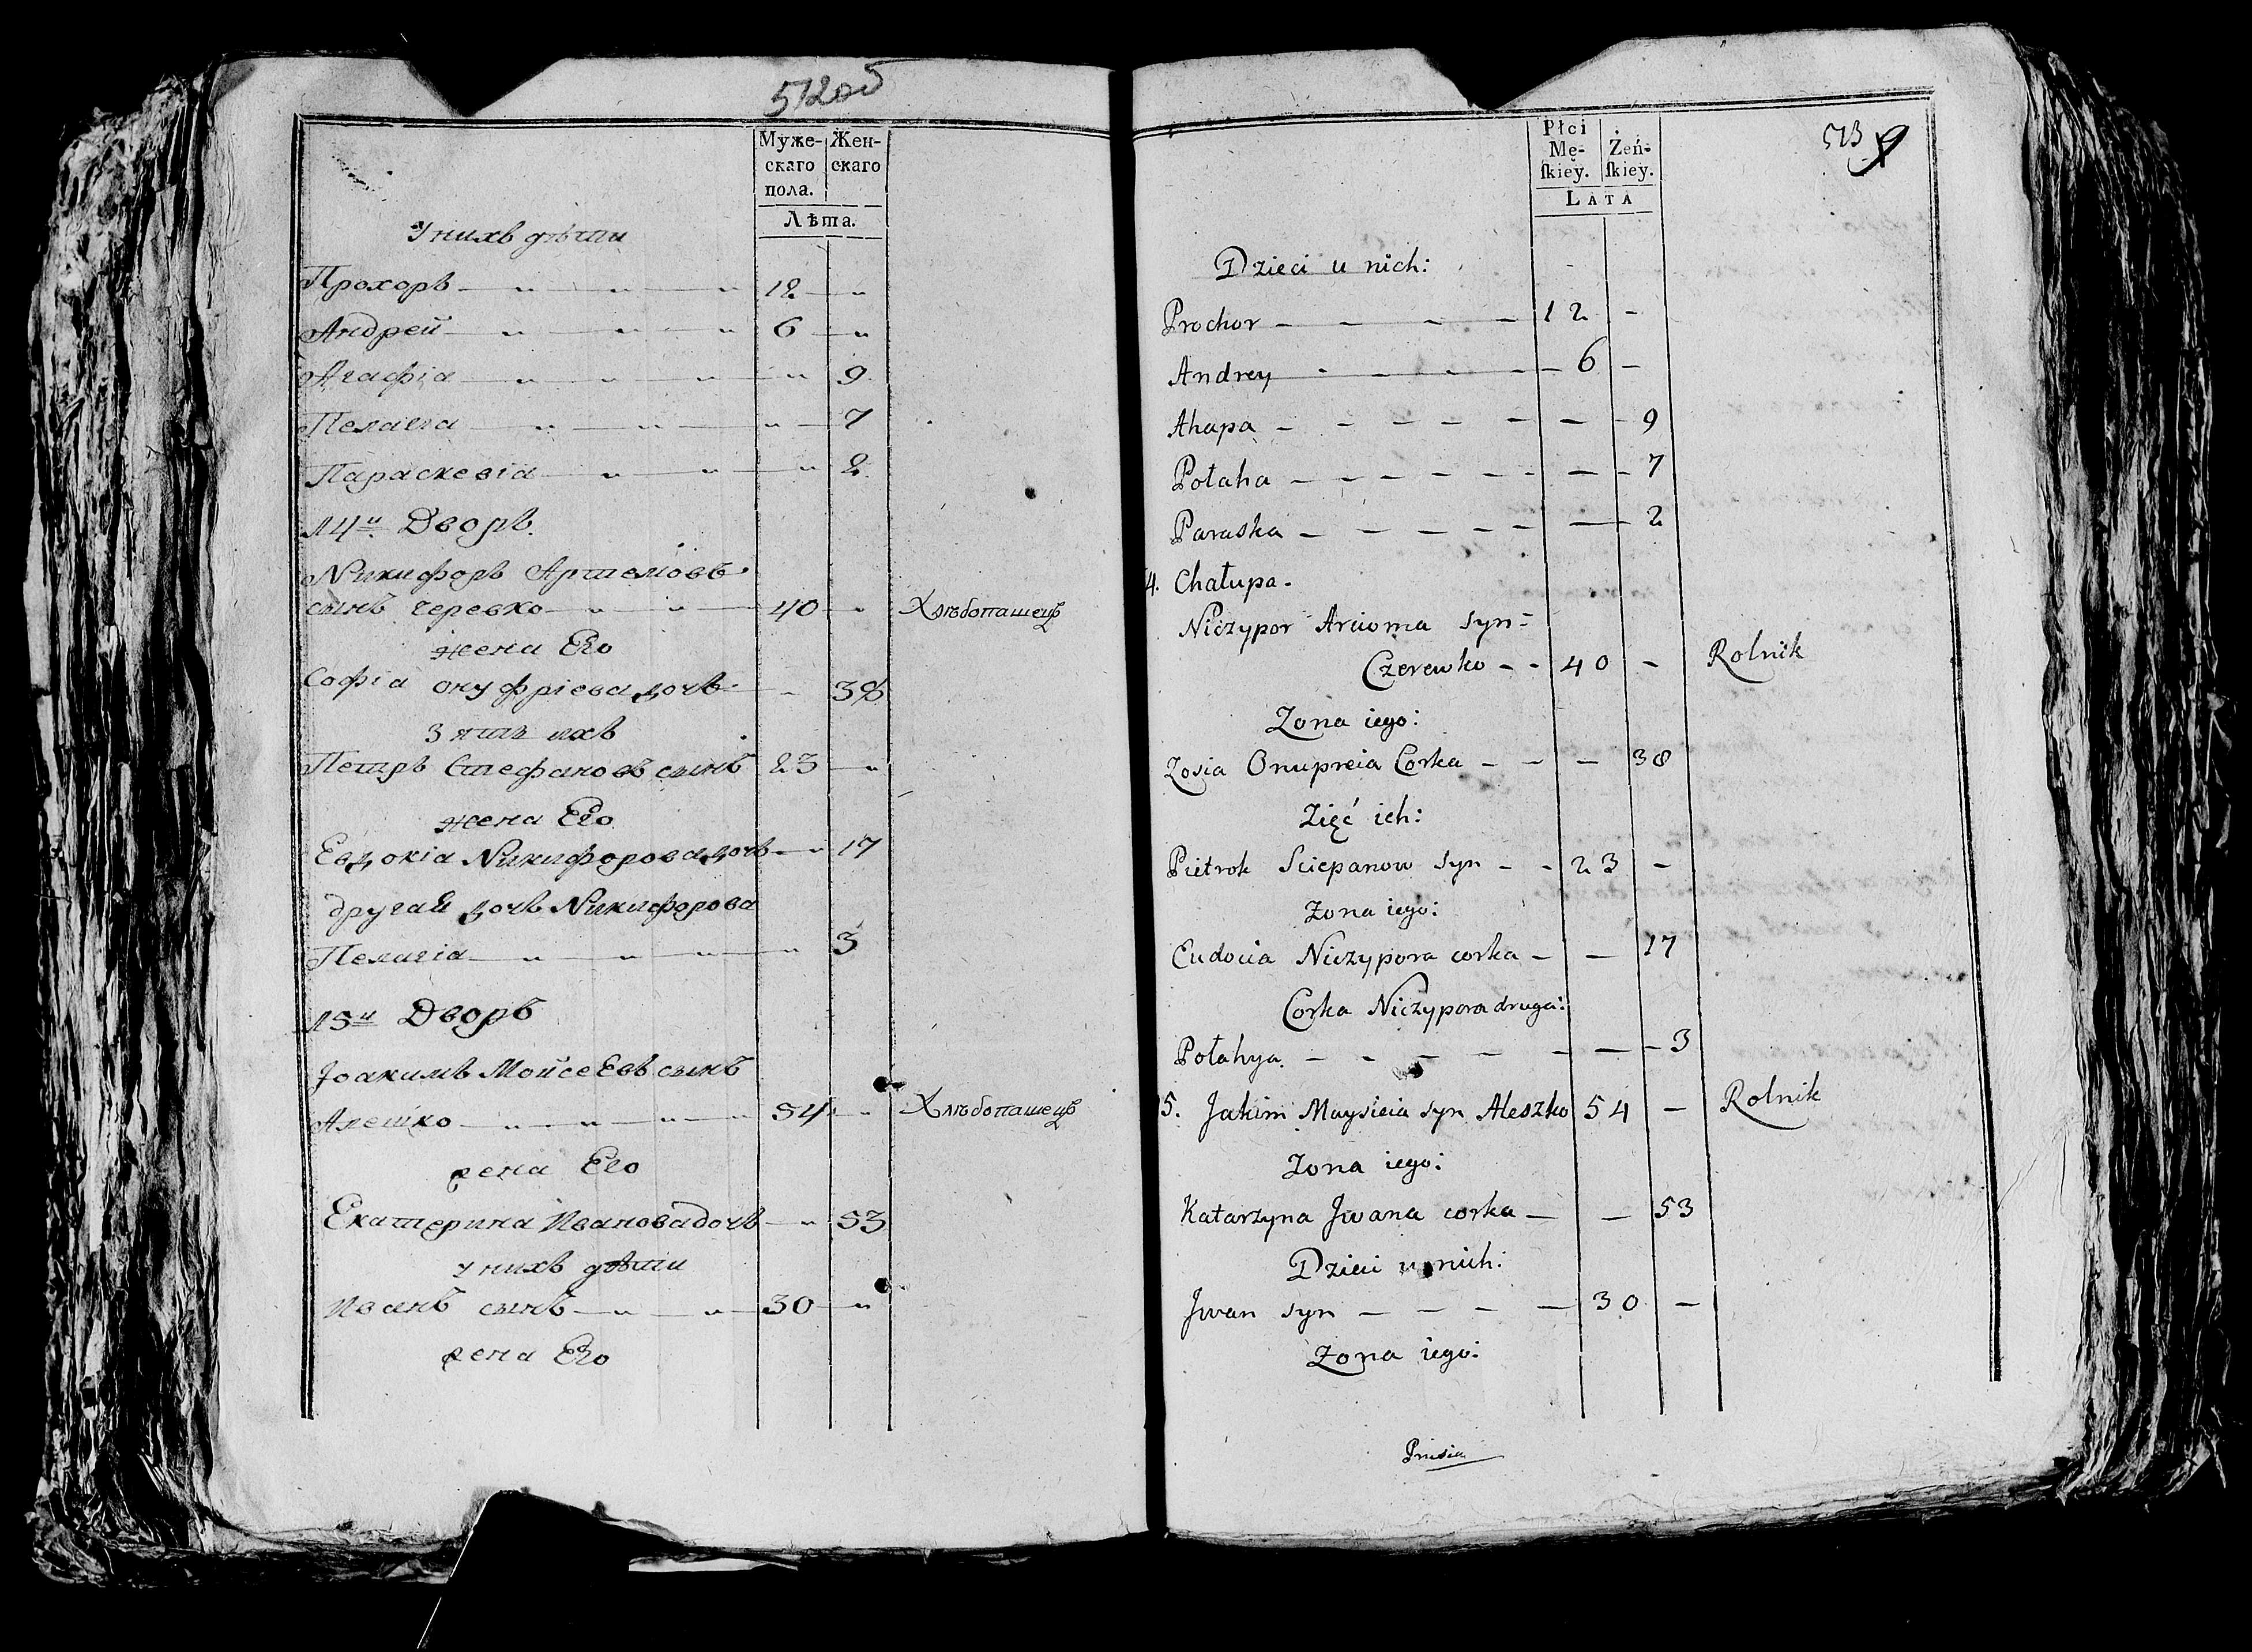 512об
Муже-
скаго
пола.
Жен-
скаго
Лѣта.
У нихъ дѣти
Прохоръ — " — " — " 12 — "
Андрей — " — " — " 6 — "
Агафiа — " — " — " — " 9
Пелагiа — " — " — " — 7
Параскевiа — " — " — " 2
14й Дворъ.
Никифоръ Артемовъ
сынъ Черевко — " — " — 40 — " Хлѣбопашецъ
жена Его
Софiа онуфрiева дочь — " 38
Зять ихъ
Петръ Стефановъ сынъ 23 — "
жена Его
Евдокiа Никифорова дочь — " 17
другая дочь Никифорова
Пелагiа — " — " — " — " 3
15й Дворъ
Iоакимъ Мойсеевъ сынъ
Алешко — " — " — " — " 54 — " Хлѣбопашецъ
жена Его
Екатерина Ивановадочь — " 53
У нихъ дѣти
Иванъ сынъ — " — " 30 — "
жена Его
513
9
Płci
Mę-
ſkiey.
Żeń-
ſkiey.
LATA
Dzieci u nich:
Prochor — — — — 12 -
Andrey - - - - - 6 -
Ahapa - - - - - - - 9
Połaha - - - - - - - 7
Paraska - - - - - — 2
4. Chałupa.
Niczypor Arcioma syn=
Czerewko - - 40 - Rolnik
Zona iego:
Zosia Onupreia Corka - - - 38
Zięć ich:
Pietrok Sciepanow syn - - 23 -
Zona iego:
Eudocia Niczypora corka - - 17
Corka Niczypora druga:
Połahya. - - - - - - - 3
5. Jakim Maysieia syn Aleszko 54 - Rolnik
Zona iego:
Katarzyna Jwana corka - - 53
Dzieci u nich:
Jwan syn - - - - 30 -
Zona iego: